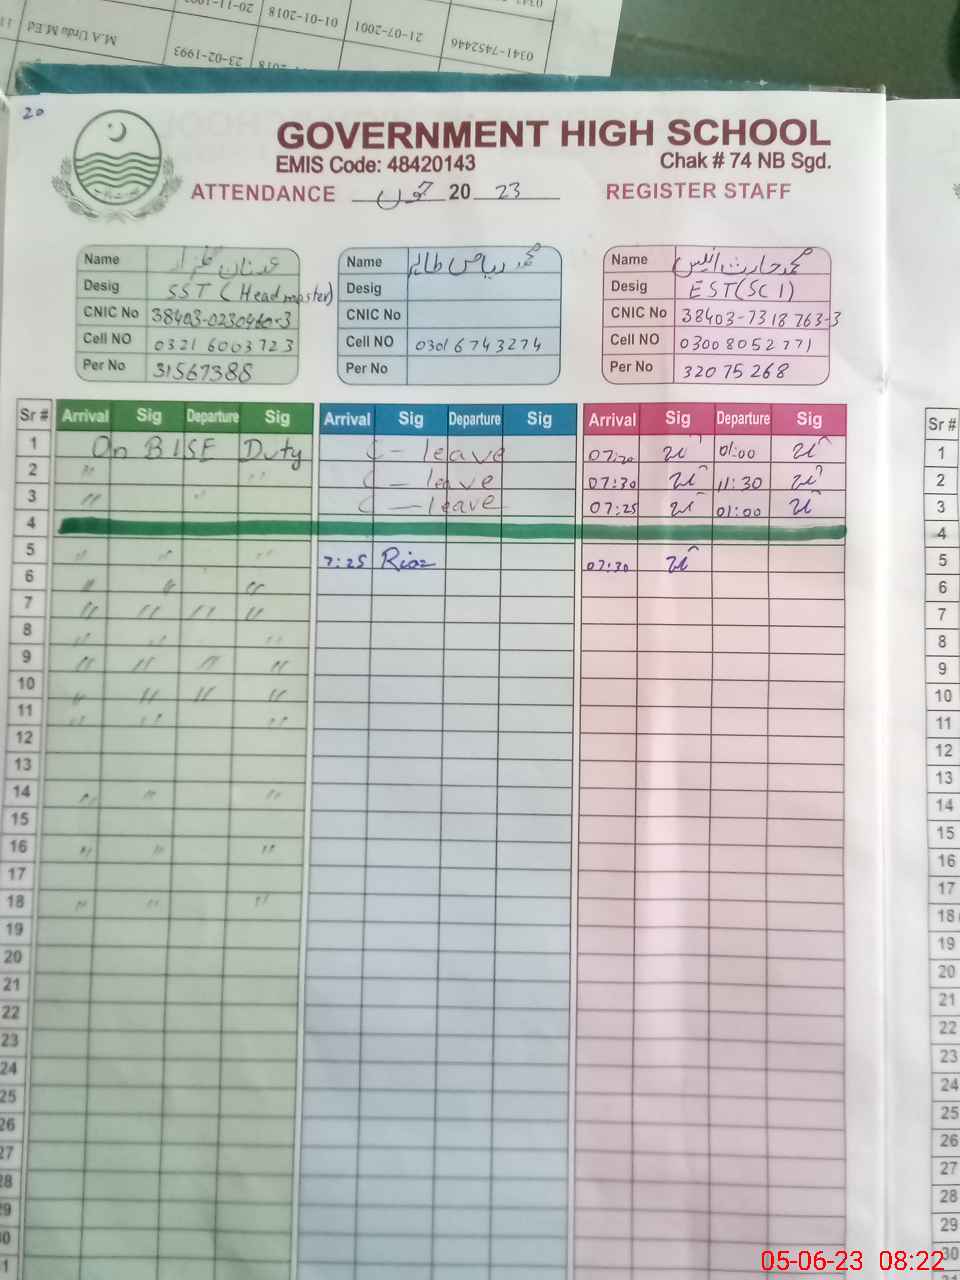 0341-7452446 21-07-2001 01-01-2018 20-11-1992
M.A Urdu M.Ed 23-02-1993
20
GOVERNMENT HIGH SCHOOL
EMIS Code: 48420143 Chak # 74 NB Sgd.
ATTENDANCE جون 20 23 REGISTER STAFF
Name عدنان گلزار
Desig SST (Headmaster)
CNIC No 38403-0230460-3
Cell NO 0321 6003723
Per No 31567388
Name محمد ریاض طاہر
Desig
CNIC No
Cell NO 0301 6743274
Per No
Name محمد حارث انیس
Desig EST(SCI)
CNIC No 38403-7318763-3
Cell NO 0300 8052771
Per No 32075268
Sr # Arrival Sig Departure Sig Arrival Sig Departure Sig Arrival Sig Departure Sig Sr #
1 On BISE Duty C - leave 07:20 01:00 1
2 " " C - leave 07:30 11:30 2
3 " " C - leave 07:25 01:00 3
4 4
5 " " " 7:25 Riaz 07:30 5
6 " " " 6
7 " " " " 7
8 " " " 8
9 " " " " 9
10 " " " " 10
11 " " " 11
12 12
13 13
14 " " " 14
15 15
16 " " " 16
17 17
18 " " " 18
19 19
20 20
21 21
22 22
23 23
24 24
25 25
26 26
27 27
28 28
29 29
30 30
05-06-23 08:22